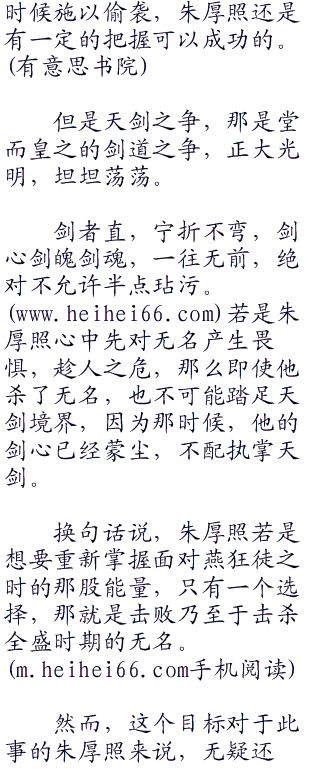 时候施以偷袭，朱厚照还是
有一定的把握可以成功的。
(有意思书院)
但是天剑之争，那是堂
而皇之的剑道之争，正大光
明，坦坦荡荡。
剑者直，宁折不弯，剑
心剑魄剑魂，一往无前，绝
对不允许半点玷污。
(www.heihei66.com)若是朱
厚照心中先对无名产生畏
惧，趁人之危，那么即使他
杀了无名，也不可能踏足天
剑境界，因为那时候，他的
剑心已经蒙尘，不配执掌天
剑。
换句话说，朱厚照若是
想要重新掌握面对燕狂徒之
时的那股能量，只有一个选
择，那就是击败乃至于击杀
全盛时期的无名。
(m.heihei66.com手机阅读)
然而，这个目标对于此
事的朱厚照来说，无疑还